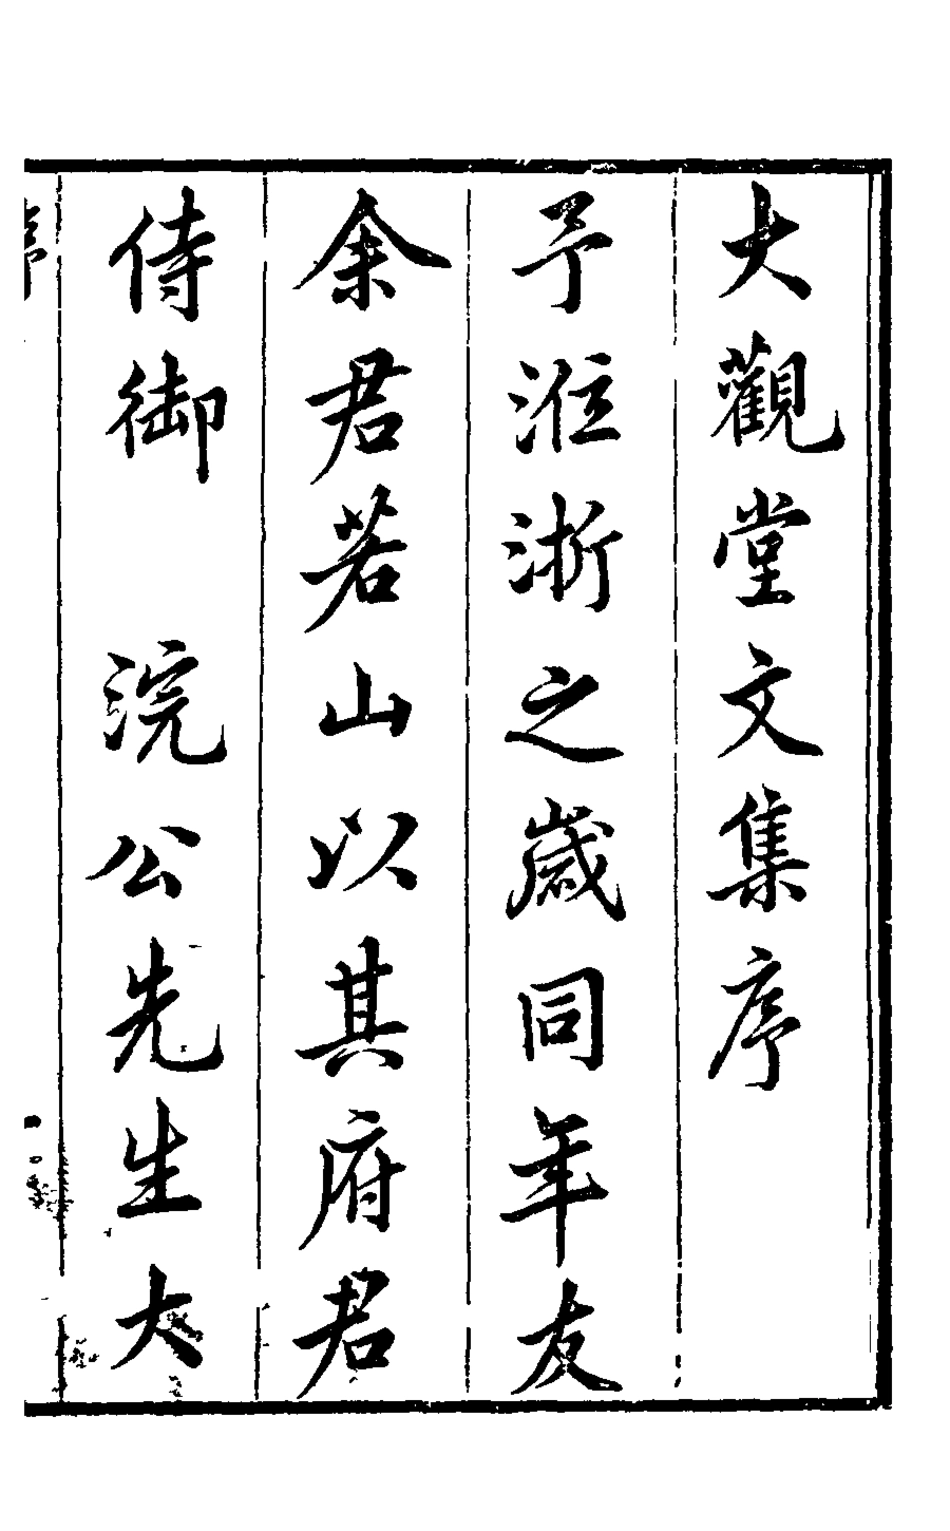 大觀堂文集序
予涖浙之歲同年友
余君若山以其府君
侍御　浣公先生大